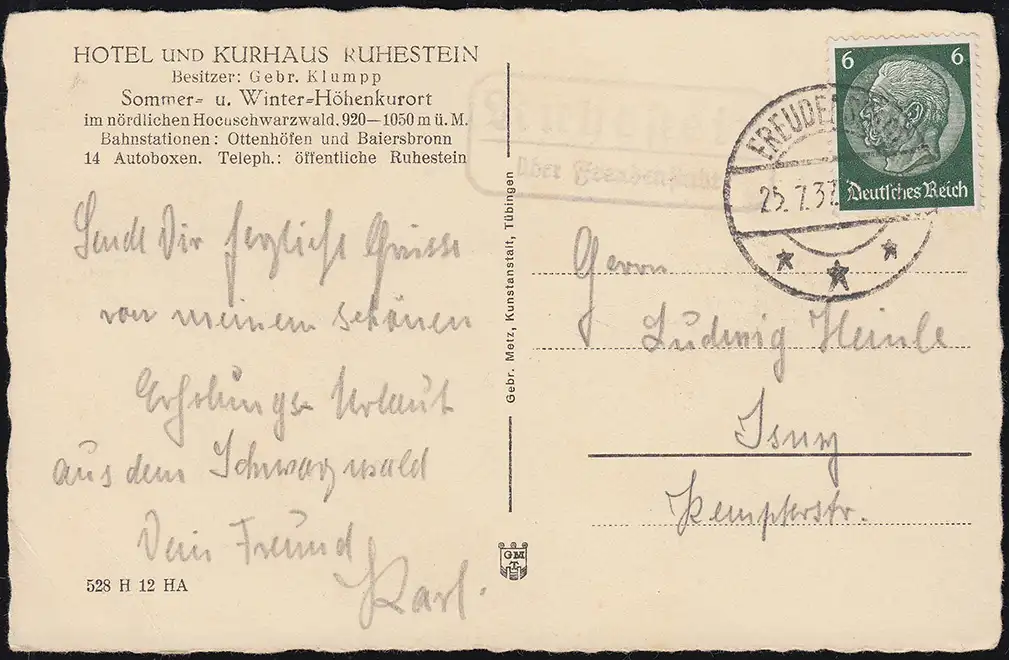 HOTEL UND KURHAUS RUHESTEIN
Besitzer: Gebr. Klumpp
Sommer- u. Winter-Höhenkurort
im nördlichen Hochschwarzwald, 920–1050 m ü. M.
Bahnstationen: Ottenhöfen und Baiersbronn
14 Autoboxen. Teleph.: öffentliche Ruhestein
Sende Dir herzliche Grüsse
von meinem schönen
Erholungs- Urlaub
aus dem Schwarzwald
Dein Freund
Karl.
528 H 12 HA
Gebr. Metz, Kunstanstalt, Tübingen
GMT
über Freudenstadt
25.7.37
6 6
Deutsches Reich
Herrn
Ludwig Heinle
Isny
Kempterstr.